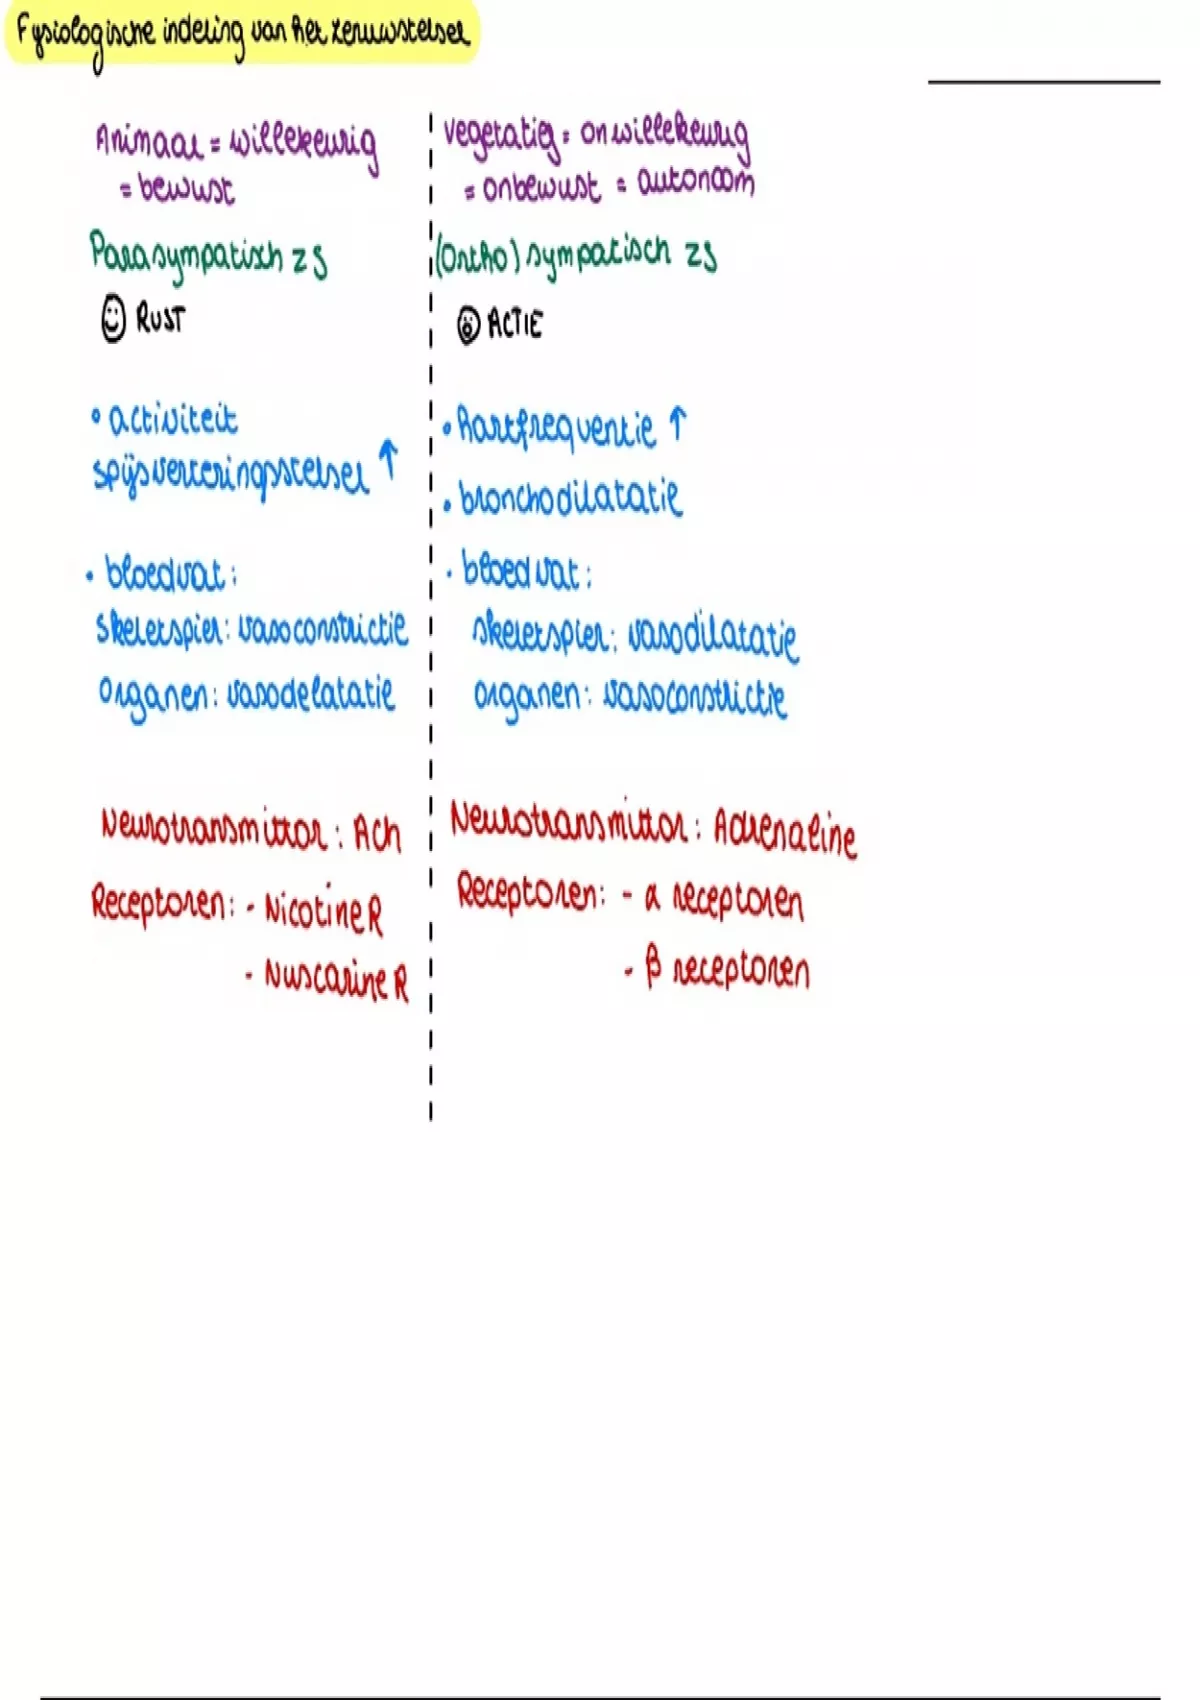 Fysiologische indeling van het zenuwstelsel
Animaal = willekeurig
= bewust
Parasympatisch zs
RUST
• activiteit
spijsverteringsstelsel ↑
• bloedvat:
skeletspier: vasoconstrictie
organen: vasodelatatie
Neurotransmittor: ACh
Receptoren: - Nicotine R
- Nuscarine R
vegetatief = onwillekeurig
= onbewust = autonoom
(ortho) sympatisch zs
ACTIE
• hartfrequentie ↑
• bronchodilatatie
• bloedvat:
skeletspier: vasodilatatie
organen: vasoconstrictie
Neurotransmittor: Adrenaline
Receptoren: - α receptoren
- β receptoren